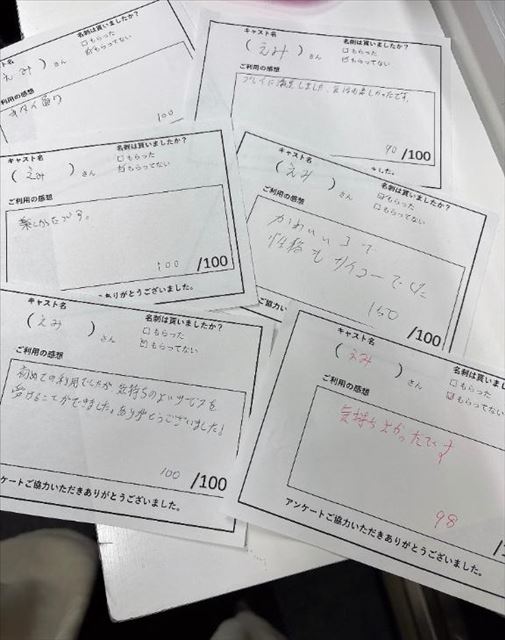 キャスト名
(えみ)さん
名刺は貰いましたか?
□もらった
☑もらってない
ご利用の感想
100
キャスト名
(えみ)さん
名刺は貰いましたか?
□もらった
☑もらってない
ご利用の感想
プレイに満足しました。会話も楽しかったです。
90/100
した。
キャスト名
(えみ)さん
名刺は貰いましたか?
□もらった
☑もらってない
ご利用の感想
楽しかったです。
100/100
ありがとうございました。
キャスト名
(えみ)さん
名刺は貰いましたか?
☑もらった
□もらってない
ご利用の感想
かわいい
性格もサイコーでした
150/100
ご協力い
キャスト名
(えみ)さん
名刺は貰いましたか?
□もらった
☑もらってない
ご利用の感想
初めての利用でしたが気持ちのよいサービスを
受けることができました!ありがとうございました!
100/100
アンケートご協力いただきありがとうございました。
キャスト名
(えみ)さん
名刺は貰いまし
□もらった
☑もらってない
ご利用の感想
気持ちよかったです
98
アンケートご協力いただきありがとうございました。